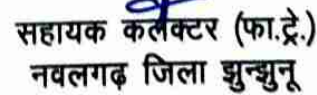 सहायक कलैक्टर (फा.ट्रे.)
नवलगढ़ जिला झुन्झुनू